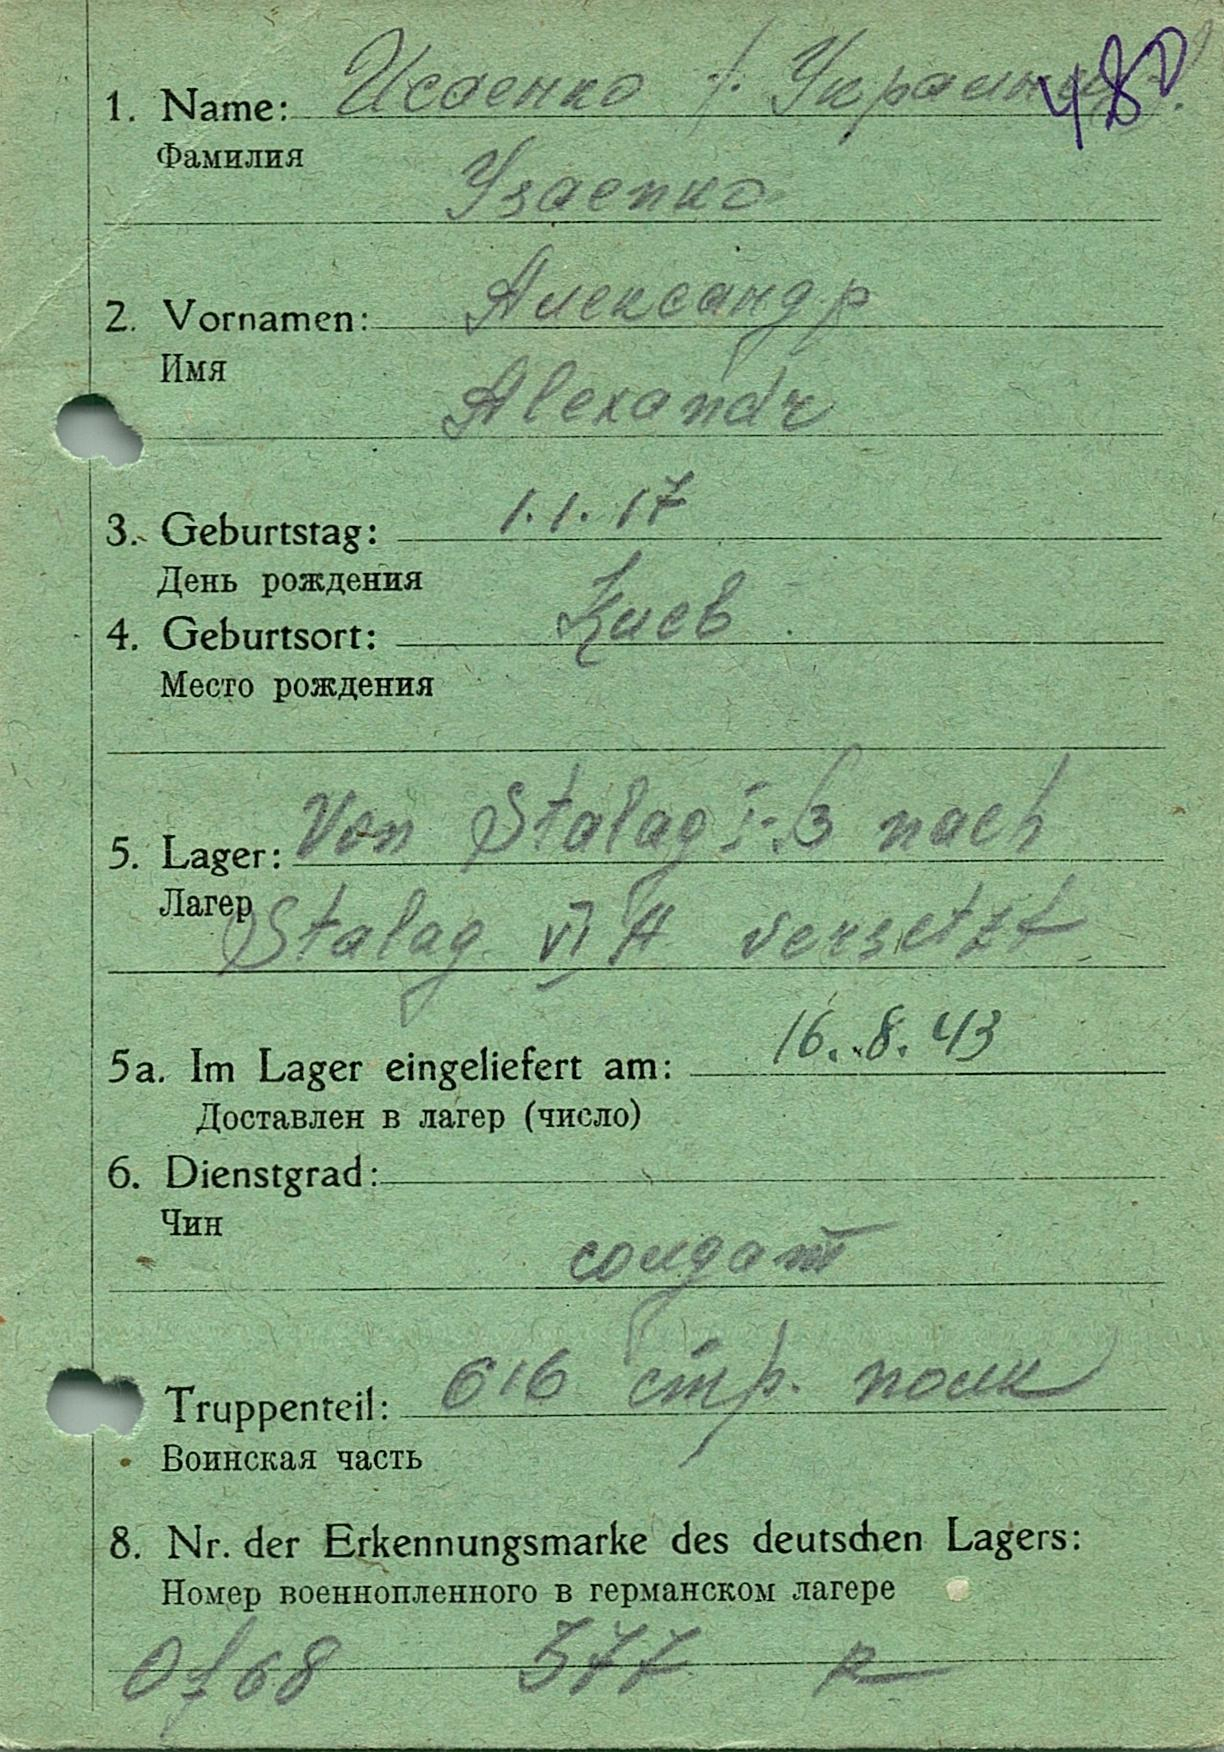 480
1. Name: Исаенко /. Украинец.
Фамилия
Узаепко
2. Vornamen: Александр
Имя
Alexandr
3. Geburtstag: 1.1.17
День рождения
4. Geburtsort: Киев.
Место рождения
5. Lager: Von Stalag I-B nach
Лагер
Stalag VI A versetzt
5a. Im Lager eingeliefert am: 16.8.43
Доставлен в лагер (число)
6. Dienstgrad:
Чин
солдат
Truppenteil: 616 стр. полк
Воинская часть
8. Nr. der Erkennungsmarke des deutschen Lagers:
Номер военнопленного в германском лагере
Of 68 577